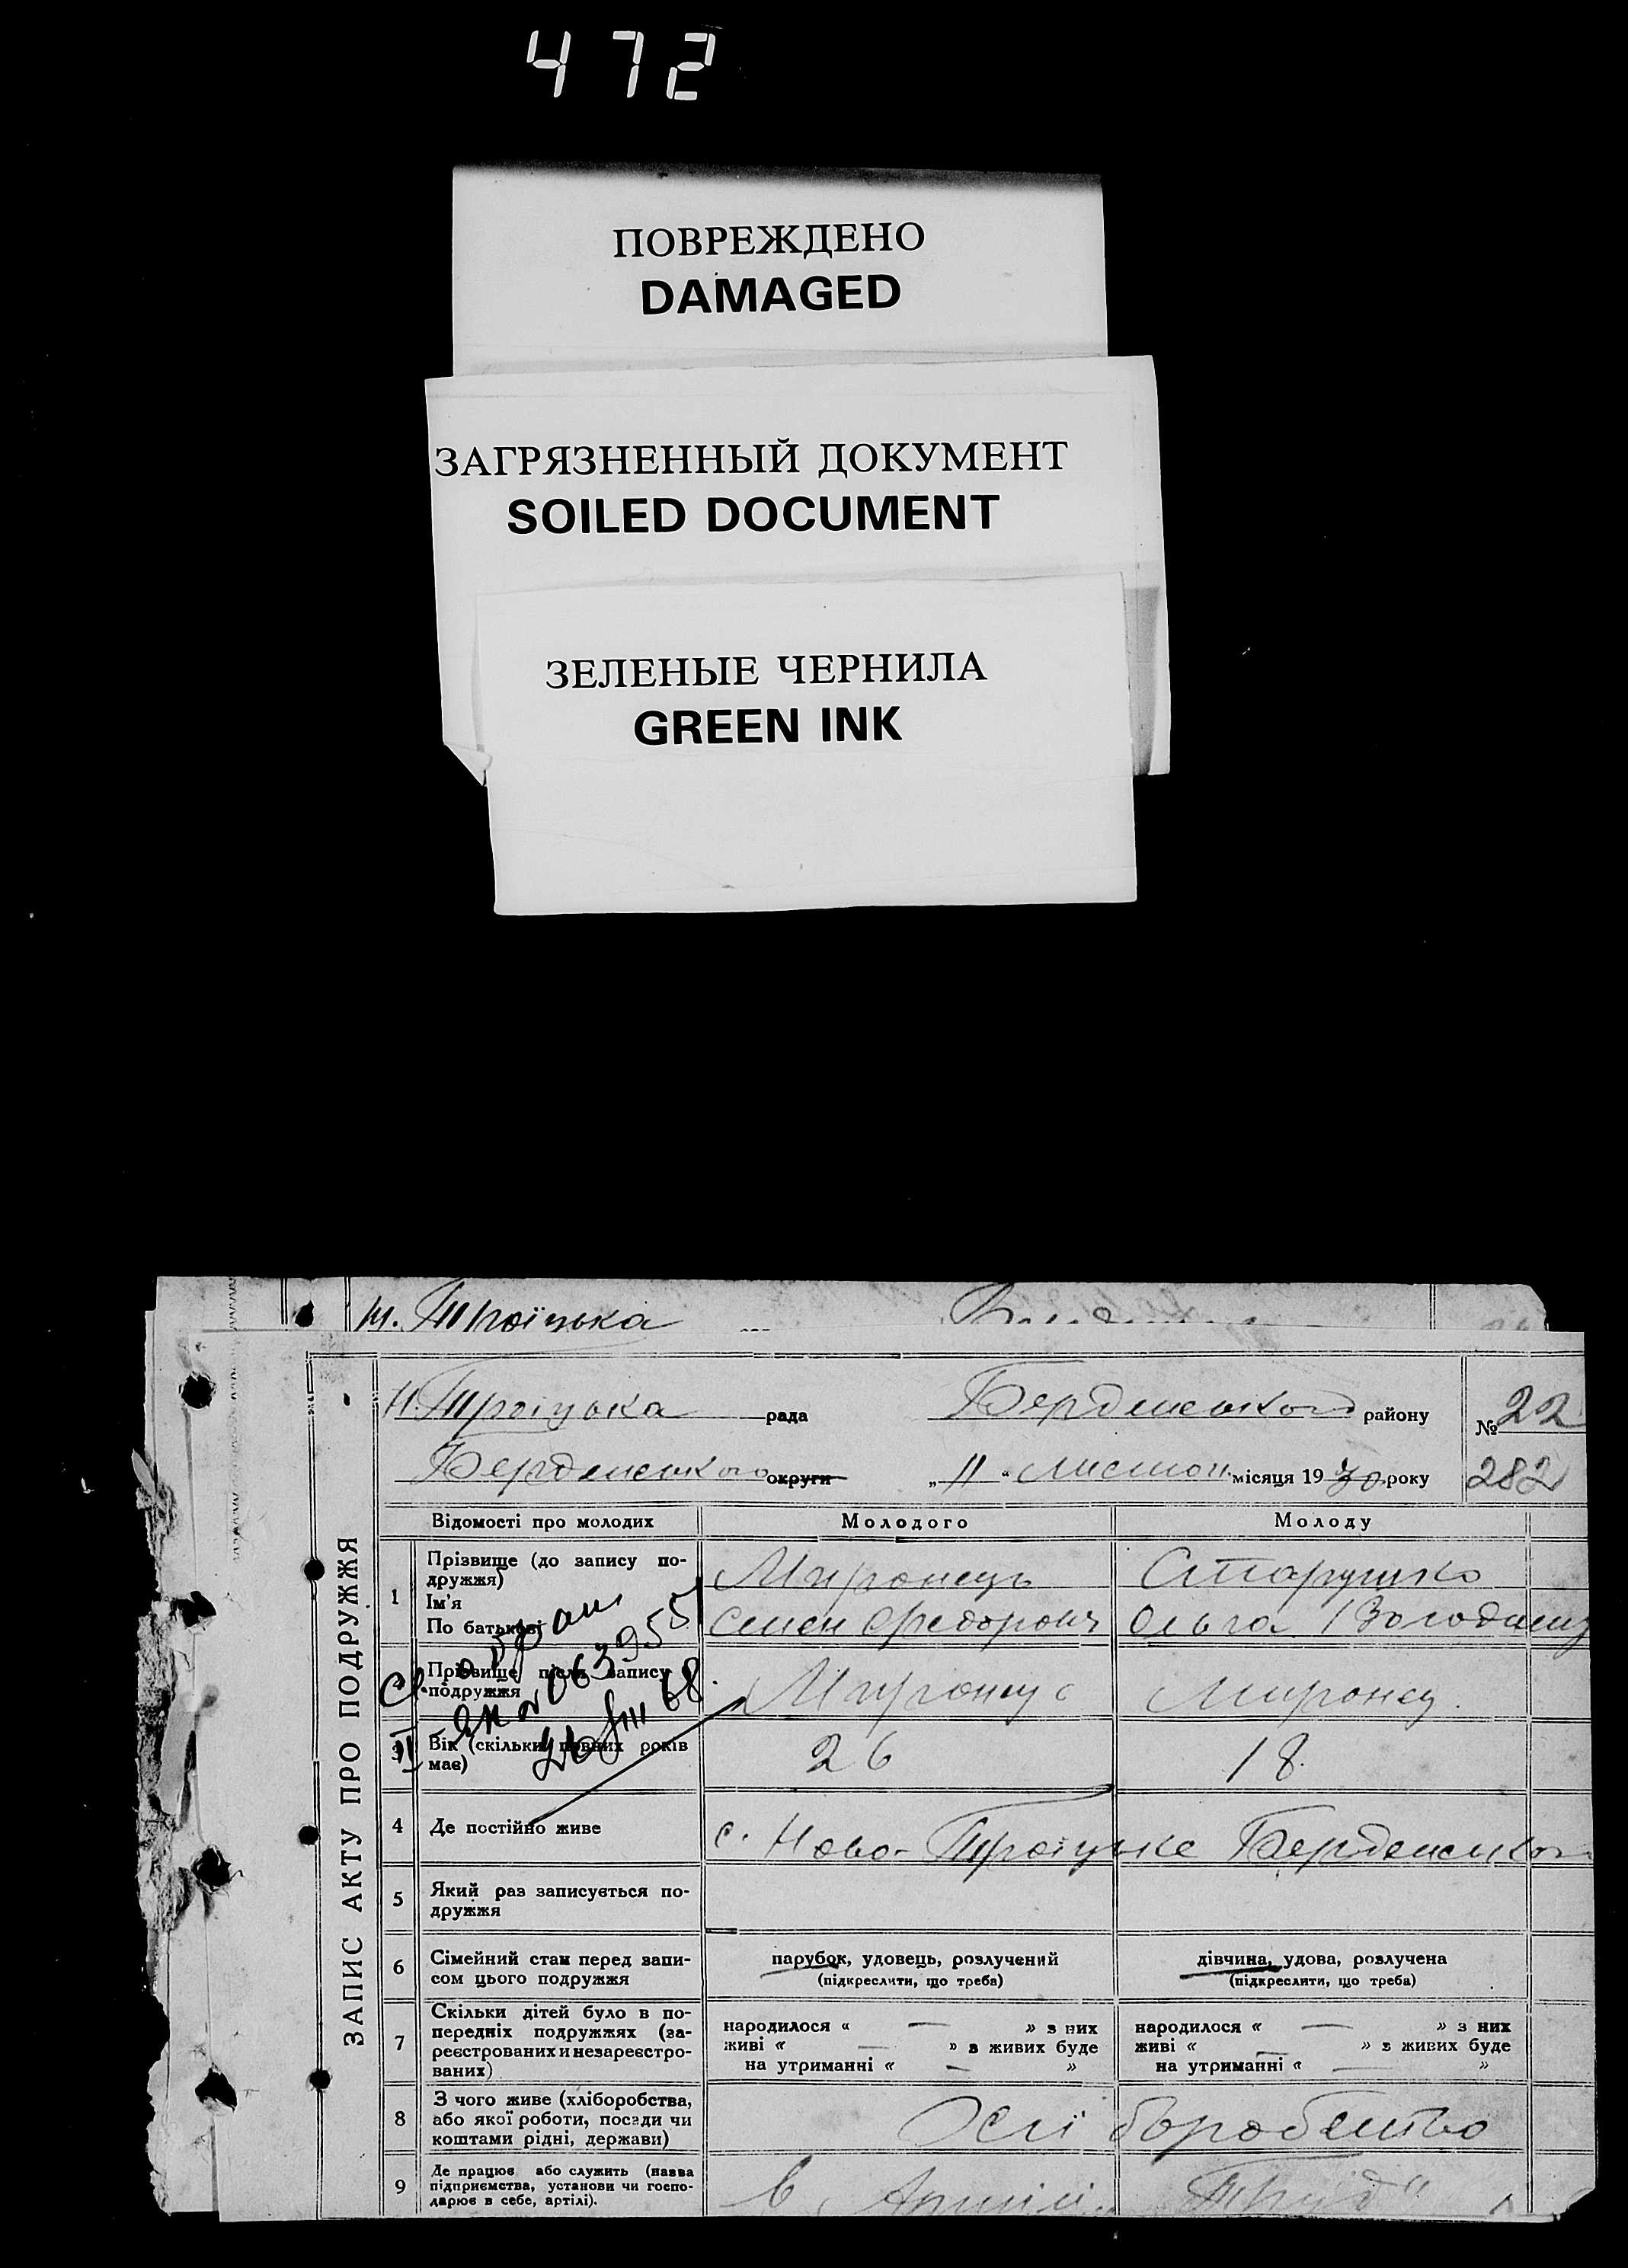 472
ПОВРЕЖДЕНО
DAMAGED
ЗАГРЯЗНЕННЫЙ ДОКУМЕНТ
SOILED DOCUMENT
ЗЕЛЕНЫЕ ЧЕРНИЛА
GREEN INK
Троїцька
ЗАПИС АКТУ ПРО ПОДРУЖЖЯ
Н. Троїцька рада Берденського району № 22
Берденського округи „11“ листоп. місяця 1930 року 282
Відомості про молодих Молодого Молоду
1 Прізвище (до запису по-
дружжя) Миронець Старушко
Ім'я
По батькові Семен Федорович Ольга Володимир
Прізвище після запису
подружжя Миронец Миронец
063955
68
3 Вік (скільки повних років
має) 26 18.
4 Де постійно живе с. Ново-Троіцьке Берденського
5 Який раз записується по-
дружжя
6 Сімейний стан перед запи-
сом цього подружжя
парубок, удовець, розлучений
(підкреслити, що треба)
дівчина, удова, розлучена
(підкреслити, що треба)
7 Скільки дітей було в по-
передніх подружжях (за-
реєстрованих и незареєстро-
ваних)
народилося « — » з них
живі « — » з живих буде
на утриманні « — »
народилося « — » з них
живі « — » з живих буде
на утриманні « — »
8 З чого живе (хліборобства,
або якої роботи, посади чи
коштами рідні, держави)
9 Де працює або служить (назва
підприємства, установи чи госпо-
дарює в себе, артілі).
в Артілі „Труд“